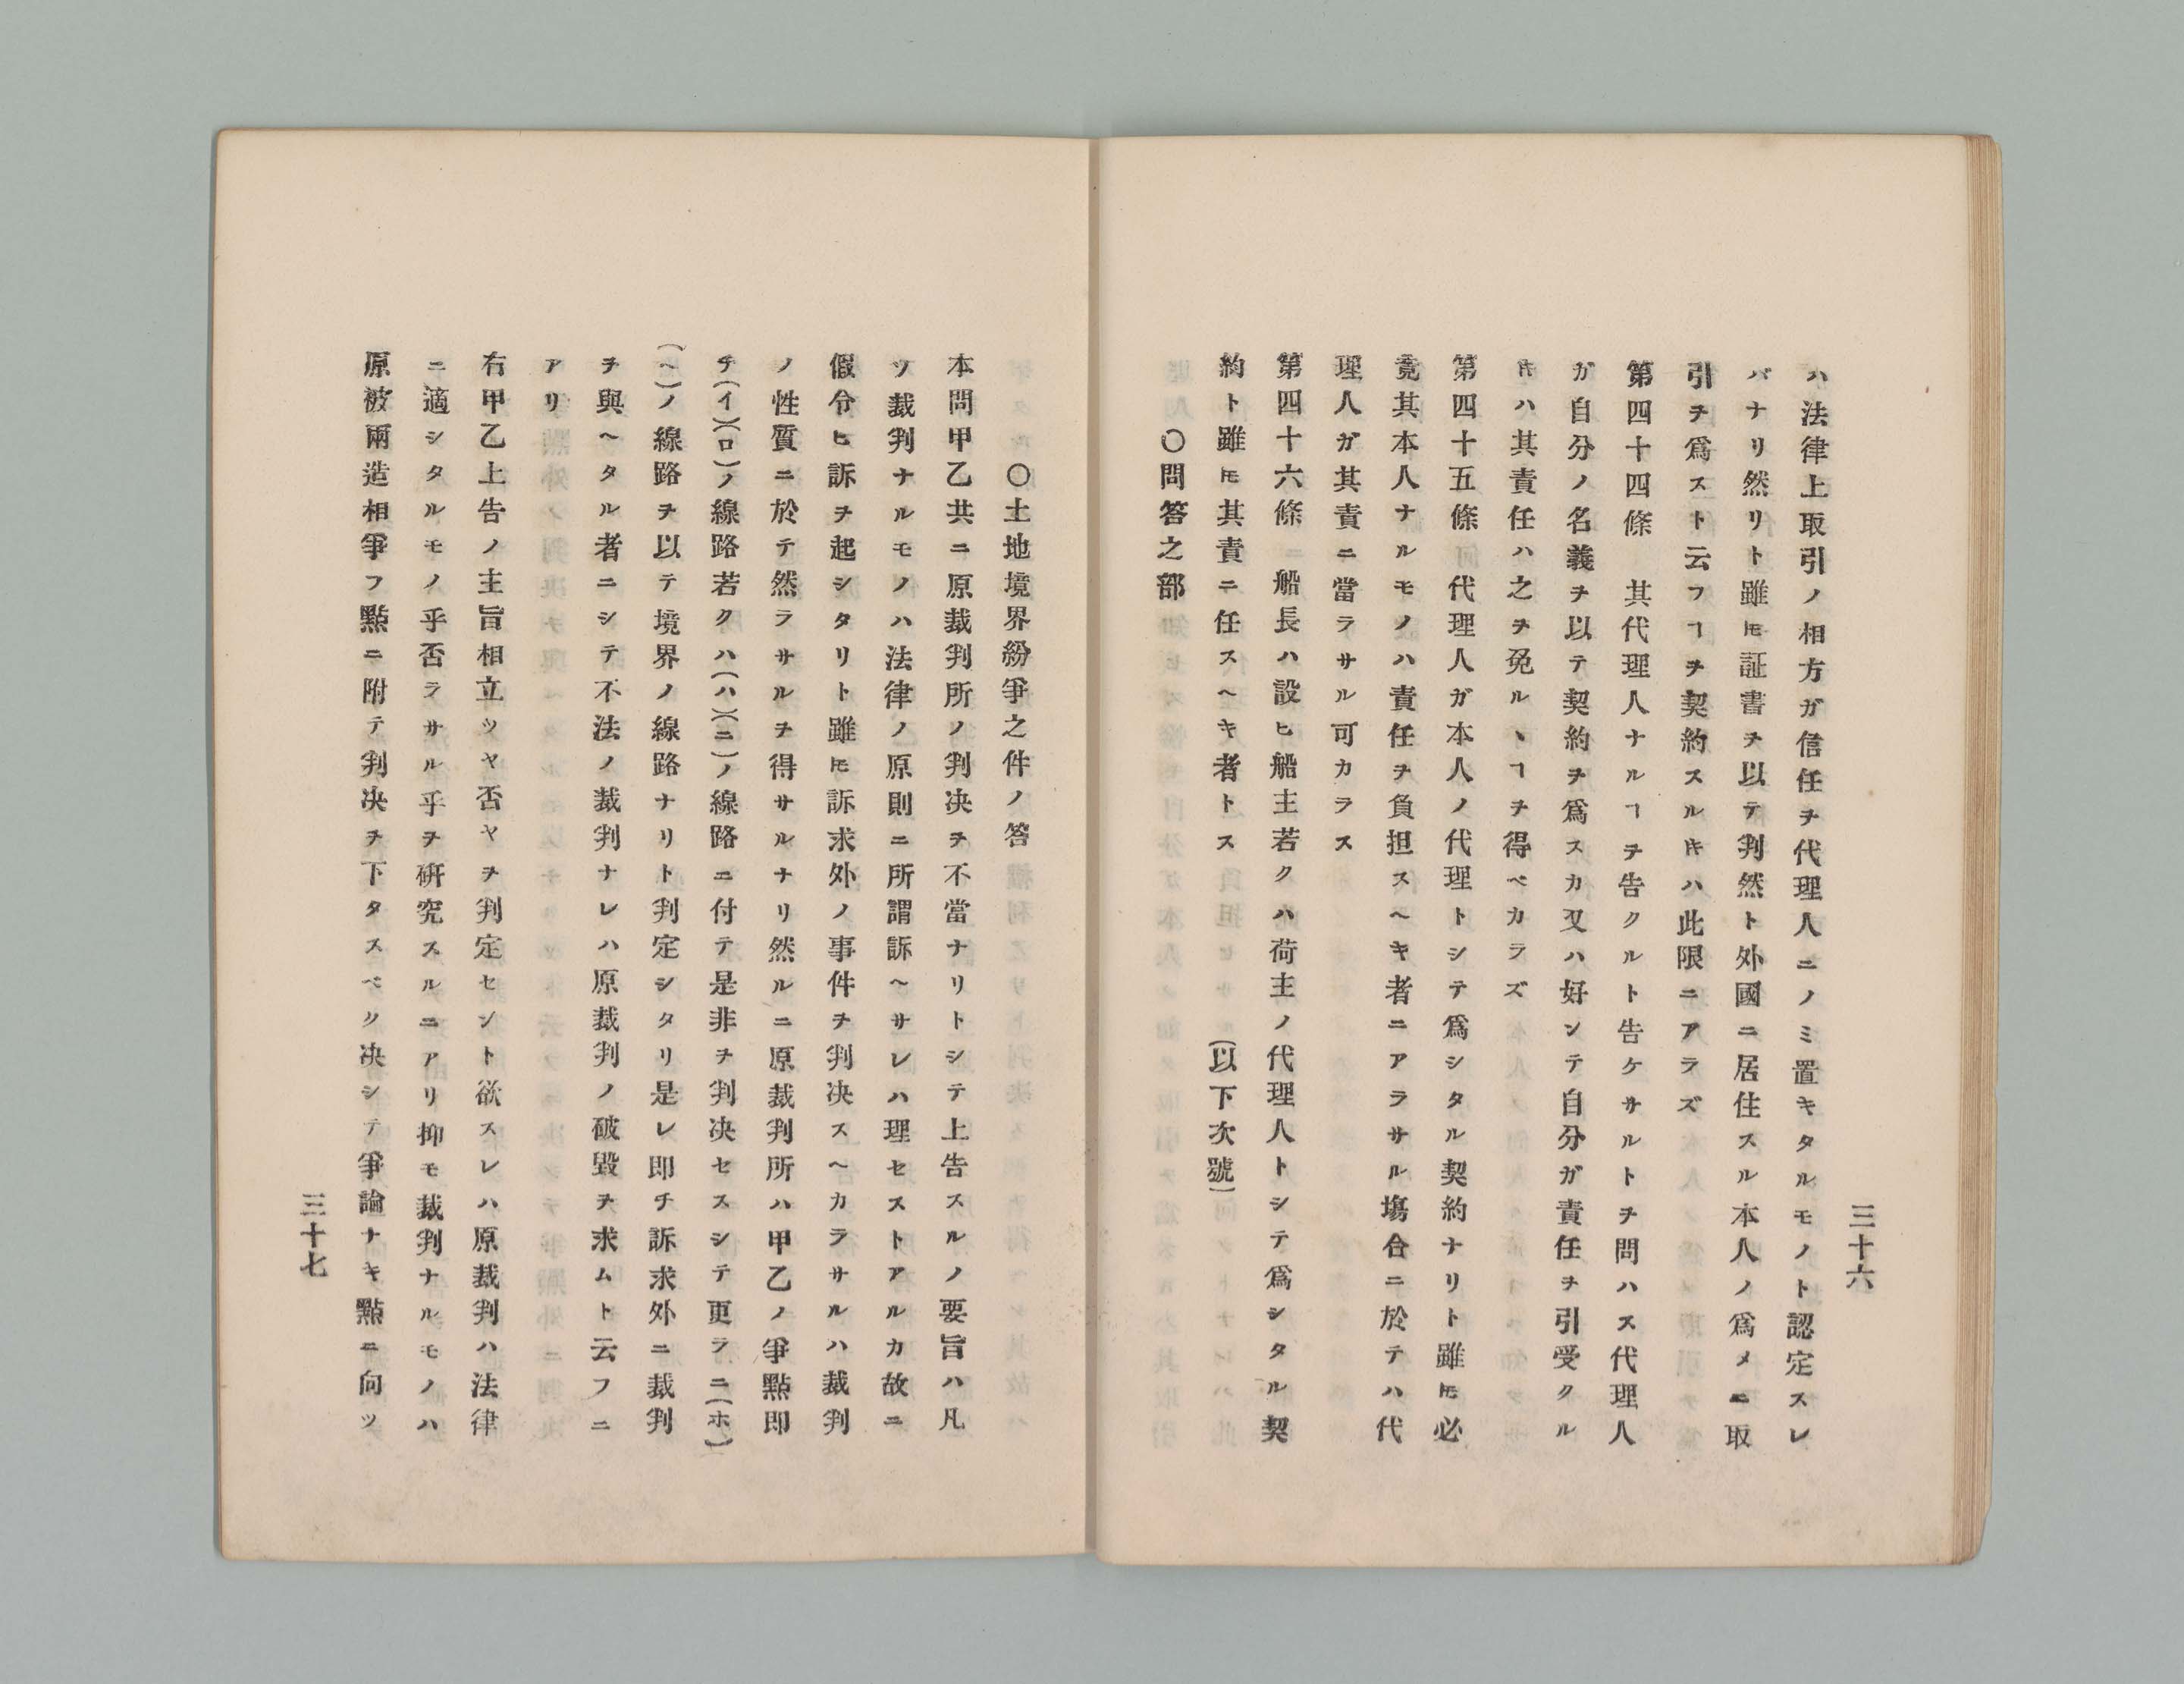 三十六
ハ法律上取引ノ相方ガ信任ヲ代理人ニノミ置キタルモノト認定スレ
バナリ然リト雖𪜈証書ヲ以テ判然ト外國ニ居住スル本人ノ爲メニ取
引ヲ爲スト云フヿヲ契約スルキハ此限ニアラズ
第四十四條　其代理人ナルヿヲ告クルト告ケサルトヲ問ハス代理人
ガ自分ノ名義ヲ以テ契約ヲ爲スカ又ハ好ンテ自分ガ責任ヲ引受クル
𪜈ハ其責任ハ之ヲ免ルヽヿヲ得ベカラズ
第四十五條　代理人ガ本人ノ代理トシテ爲シタル契約ナリト雖𪜈必
竟其本人ナルモノハ責任ヲ負担スヘキ者ニアラサル塲合ニ於テハ代
理人ガ其責ニ當ラサル可カラス
第四十六條　船長ハ設ヒ船主若クハ荷主ノ代理人トシテ爲シタル契
約ト雖𪜈其責ニ任スヘキ者トス　（以下次號）
〇問答之部
〇土地境界紛爭之件ノ答
本問甲乙共ニ原裁判所ノ判决ヲ不當ナリトシテ上告スルノ要旨ハ凡
ソ裁判ナルモノハ法律ノ原則ニ所謂訴ヘサレハ理セストアルカ故ニ
假令ヒ訴ヲ起シタリト雖𪜈訴求外ノ事件ヲ判决スヘカラサルハ裁判
ノ性質ニ於テ然ラサルヲ得サルナリ然ルニ原裁判所ハ甲乙ノ爭點即
チ（イ）（ロ）ノ線路若クハ（ハ）（ニ）ノ線路ニ付テ是非ヲ判决セスシテ更ラニ（ホ）
（ヘ）ノ線路ヲ以テ境界ノ線路ナリト判定シタリ是レ即チ訴求外ニ裁判
ヲ與ヘタル者ニシテ不法ノ裁判ナレハ原裁判ノ破毀ヲ求ムト云フニ
アリ
右甲乙上告ノ主旨相立ツヤ否ヤヲ判定セント欲スレハ原裁判ハ法律
ニ適シタルモノ乎否ラサル乎ヲ硏究スルニアリ抑モ裁判ナルモノハ
原被兩造相爭フ點ニ附テ判决ヲ下タスベク决シテ爭論ナキ點ニ向ツ
三十七